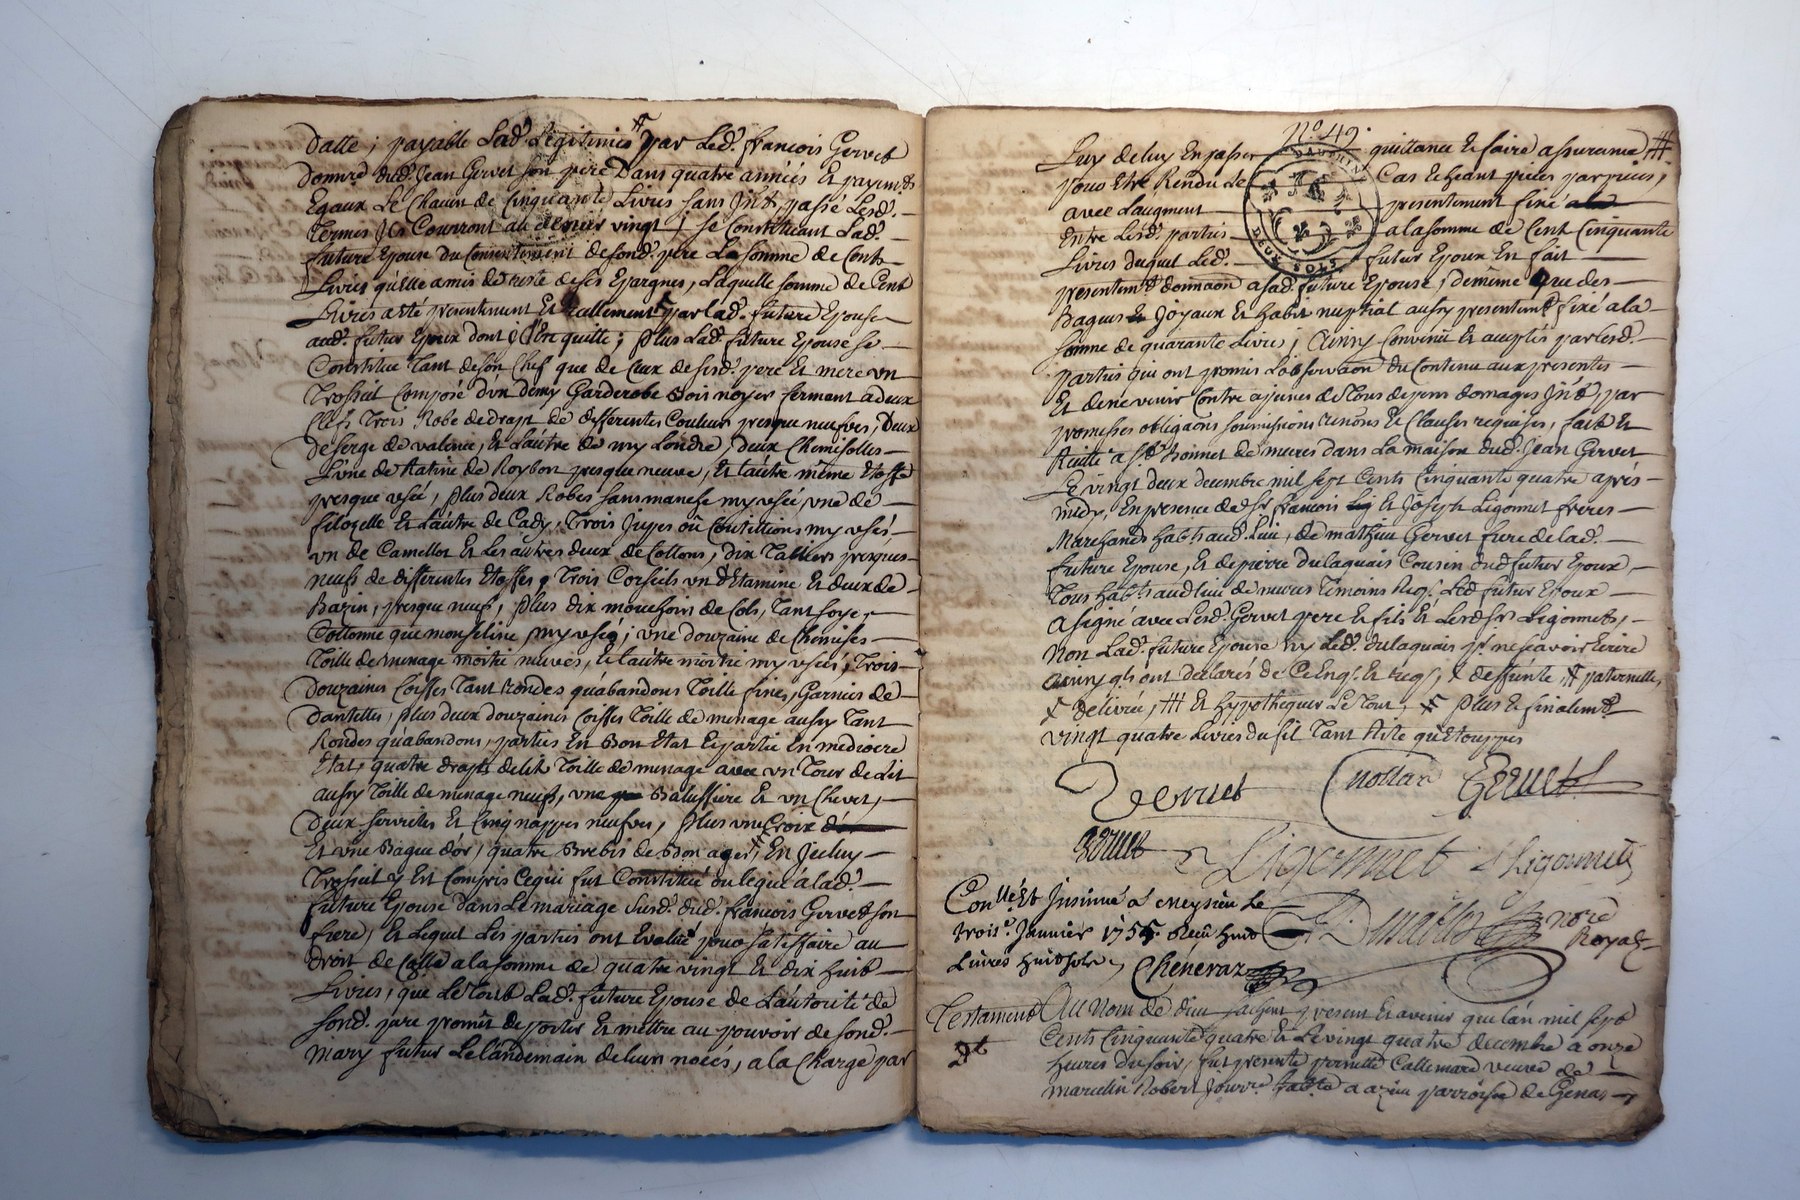 datte; payable Lad.e Legitimée # par Led. francois Gervet
donnré dud. Jean Gervet son pere Dans quatre années Et payem.ts
Egaux Le Chacun de Cinquante Livres sans Jnt. passé Lesd. –
Termes Jls Courront au denier vingt; se Constituant Lad. –
future Epouse du Consentement de sond. pere La somme de Cents
Livres qu'elle a mis de reste de ses Epargnes, Laquelle somme de Cent
Livres a été presentement Et reellement par lad. future Epouse
aud. futur Epoux dont quitte; plus Lad. future Epouse se –
Constitue Tant de son Chef que de Ceux de sesd. pere Et mere vn
Trossiel Composé d'vn demy Garderobe bois noyer fermant a deux
Clefs Trois Robe de drapt de differentes Couleurs presque neufves, Deux
de serge de valence, Et L'autre de my Londre, deux Chemisolles –
L'vne de Ratine de Roybon presque neuve, Et L'autre même Etoffe
presque vsée, plus deux Robes sans manche my vsée, vne de –
filozelle Et L'autre de Cady, Trois Jupes ou Coutillions my vsés –
vn de Camellot Et Les autres deux de Cottons, dix Tabliers presques –
neufs de differentes Etoffes, Trois Corselts vn d'Etamine Et deux de –
Bazin, presque neufs, plus dix mouchoirs de Cols, Tant soye,
Cottonne que mousseline, my vsés; vne douzaine de Chemises –
Toille de menage moitié neuves, Et L'autre moitié my vsées, Trois –
Douzaines Coeffes Tant Rondes qu'abandons Toille fines, Garnies de –
Dantelles, plus deux douzaines Coeffes Toille de menage aussy Tant
Rondes qu'abandons, parties En Bon Etat Et partie En mediocre
Etat, quatre drapts de lit Toille de menage avec vn Tour de Lit
aussy Toille de menage neufs, vne Et vn Chevet, –
Deux serviettes Et Cinq nappes neufves, plus vne Croix
Et vne Bague d'or, quatre Brebis de Bon age; En Jceluy –
Trossiel y Est Compris Ce qui fut Constitué ou legué a lad. –
future Epouse dans Le mariage susd. dud. francois Gervet son
frere, Et Lequel Les parties ont Evalué pour satisfaire au
Droit de Colle a la somme de quatre vingt Et dix huit –
Livres, que Le Tout Lad. future Epouse de L'autorité de
sond. pere promet de porter Et mettre au pouvoir de sond. –
Mary futur Le landemain de leurs noces, a la Charge par
No 49.
Luy de luy En passer quittance Et faire assurance #
pour Etre Rendu le Cas Echeant pieces par pieces,
avec L'augment presentement fixé
Entre Lesd. parties a la somme de Cent Cinquante
Livres duquel Led. – futur Epoux En fait –
DAUPHINE
DEUX SOLS
presentem.t donnaon a sad. future Epouse, de même que des –
Bagues Joyaux Et habit nuptial aussy presentem.t fixé a la –
somme de quarante Livres; Ainsy Convenu Et accepté par Lesd. –
parties qui ont promis L'observaon du Contenu aux presentes –
Et de ne venir Contre a peines de Tous depens domages Jnt. par
promesses obligaons soumissions renons Et Clauses requises, fait Et
Recitté a St. Bonnet de mures dans La maison dud. Jean Gervet
Le vingt deux decembre mil sept Cents Cinquante quatre après –
midy, En presence de Sr. francois Et Joseph Ligonnet freres –
Marchands habts aud. Lieu, de mathieu Gervet frere de lad. –
future Epouse, Et de pierre Dulaquais Cousin dud. futur Epoux, –
Tous habts aud. lieu de mures Temoins Req.s Led. futur Epoux –
a signé avec Lesd. Gervet pere Et fils Et Lesd. Srs Ligonnets, –
Non Lad. future Epouse ny Led. Dulaquais p.r ne scavoir Ecrire
ainsy q.ls ont declarés de Ce Enq.s Et req.s, x deffunte, # paternelle,
x delivrée, # Et hypothequer Le Tout, # plus Et finalem.t
vingt quatre Livres du fil Tant Rite qu'Etouppes
Gervet
Gervet
Ligonnet Ligonnet
Con.llé Et Jnsinué a Meysieu Le
trois.e Janvier 1755. Reçu huit
Livres huit sols
Cheneraz
no.re Royal
Testament Au Nom de dieu Sachent present Et avenir que l'an mil sept
Cents Cinquante quatre Et Le vingt quatre decembre a onze
heures du soir, fut presente pernette Callemard veuve de –
marcelin Robert Jourre. habt.e a azieu parroisse de Genas –